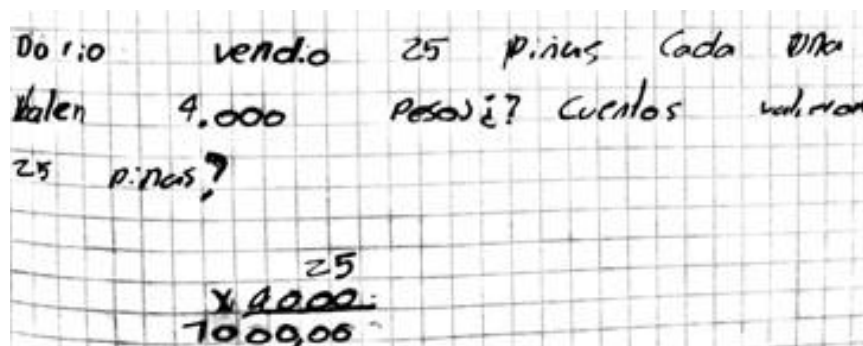 Dorio vendio 25 piñas Cada una
Valen 4.000 pesos ¿? Cuentos valieron
25 piñas?
25
x 4000
1000,00